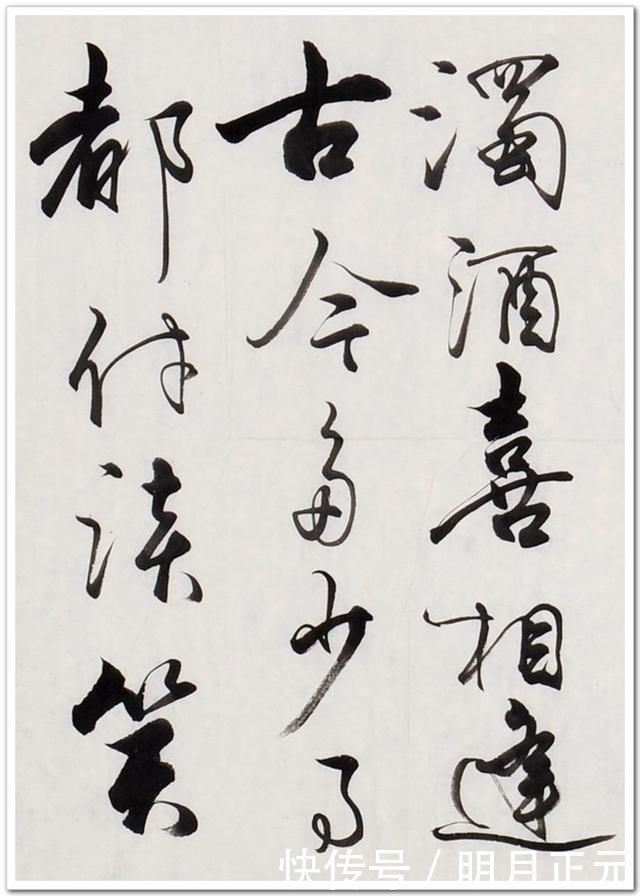 濁酒喜相逢
古今多少事
都付談笑
快传号/明月正元